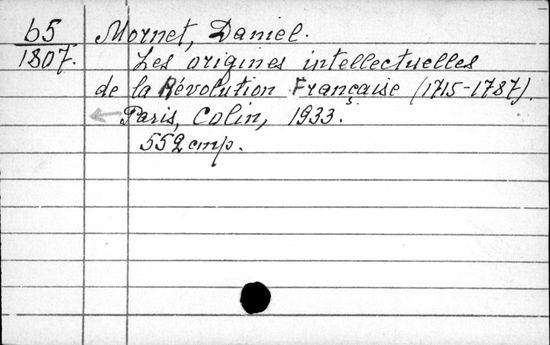 б5
1807.
Mornet, Daniel.
Les origines intellectuelles
de la Révolution Française (1715-1787).
Paris, Colin, 1933.
552 стр.